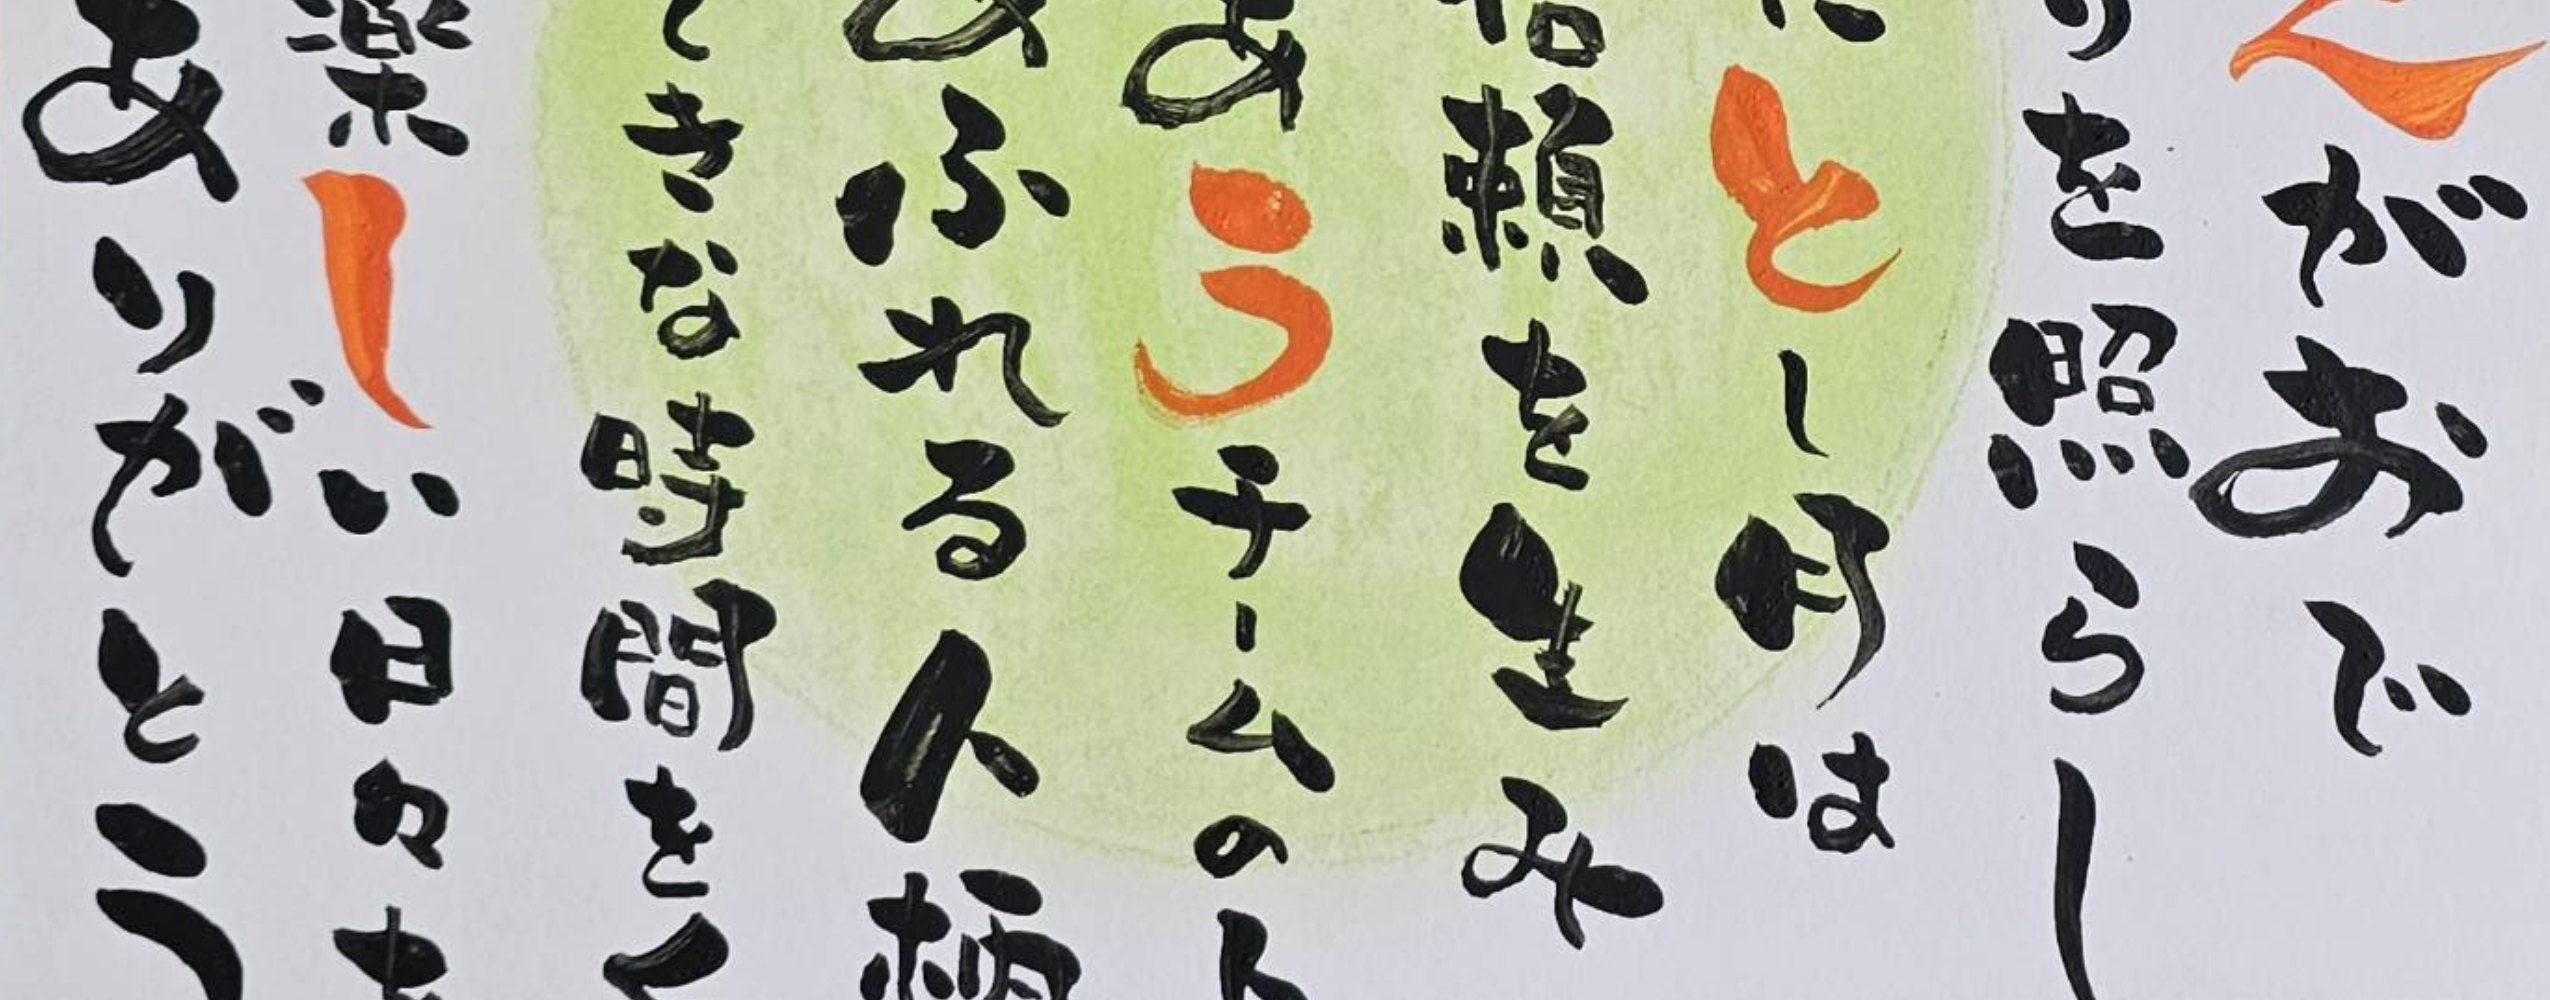 えがおで
りを照らし
とし は
信頼を生み
うチームのト
あふれる人柄
てきな時間をく
楽しい日々を
ありがとう